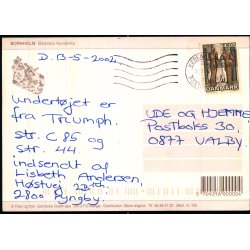 BORNHOLM Østerlars Rundkirke
D. 13-5-2002
DANMARK
undertøjet er
fra Triumph.
str. C 85 og
str. 44.
indsendt af
Lisbeth Andersen,
Høstvej 23
2800 Lyngby.
UDE OG HJEMME
Postboks 30.
0877 VALBY.